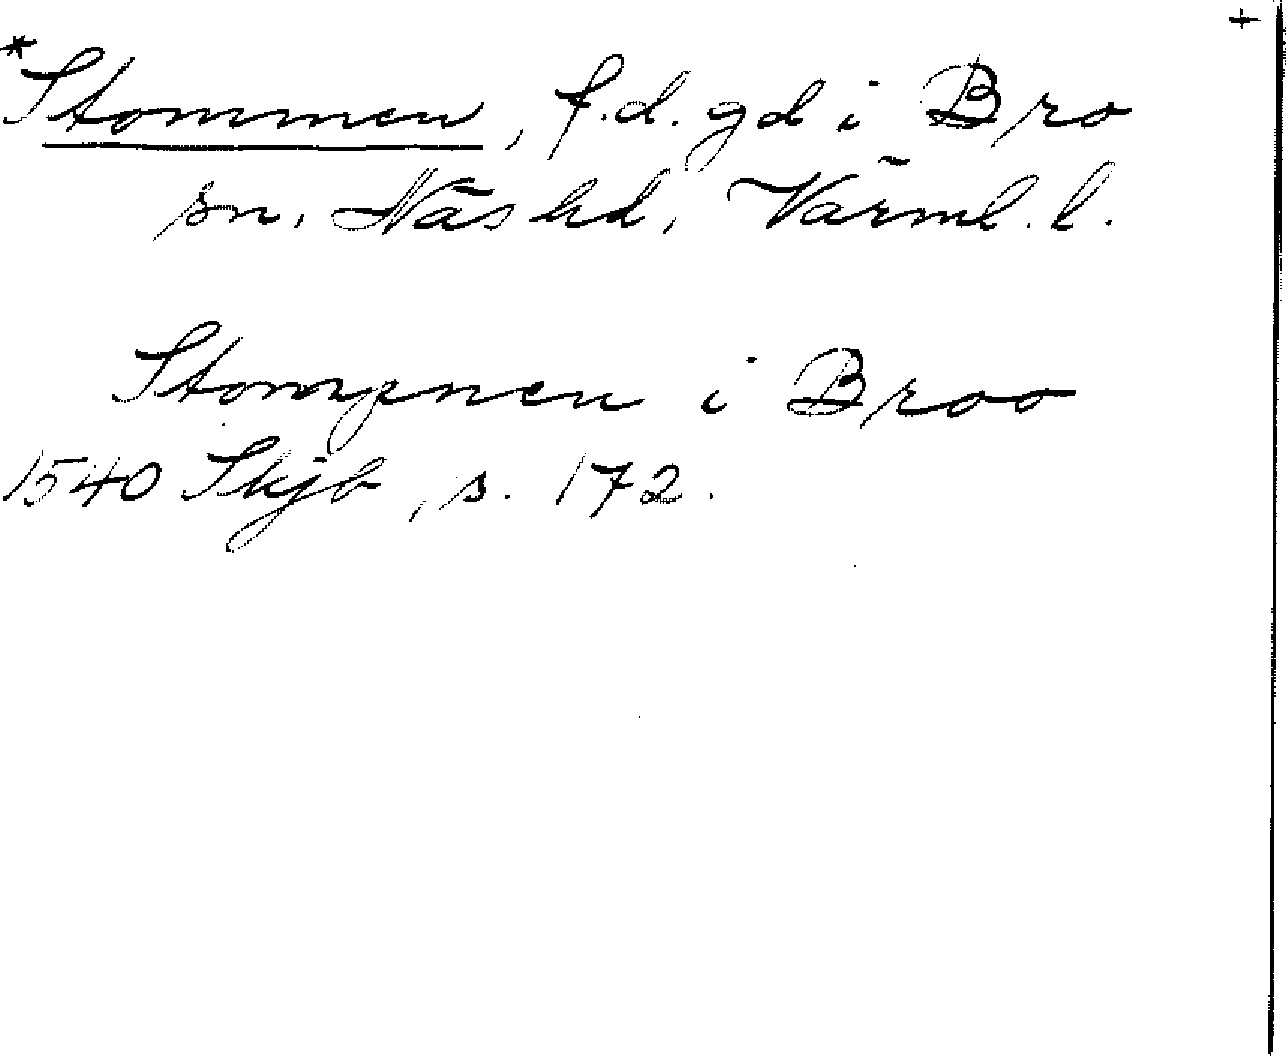 +
*Stommen, f.d. gd i Bro
sn, Näs hd, Värml. l.
Stompnen i Broo
1540 Skjb, s. 172.